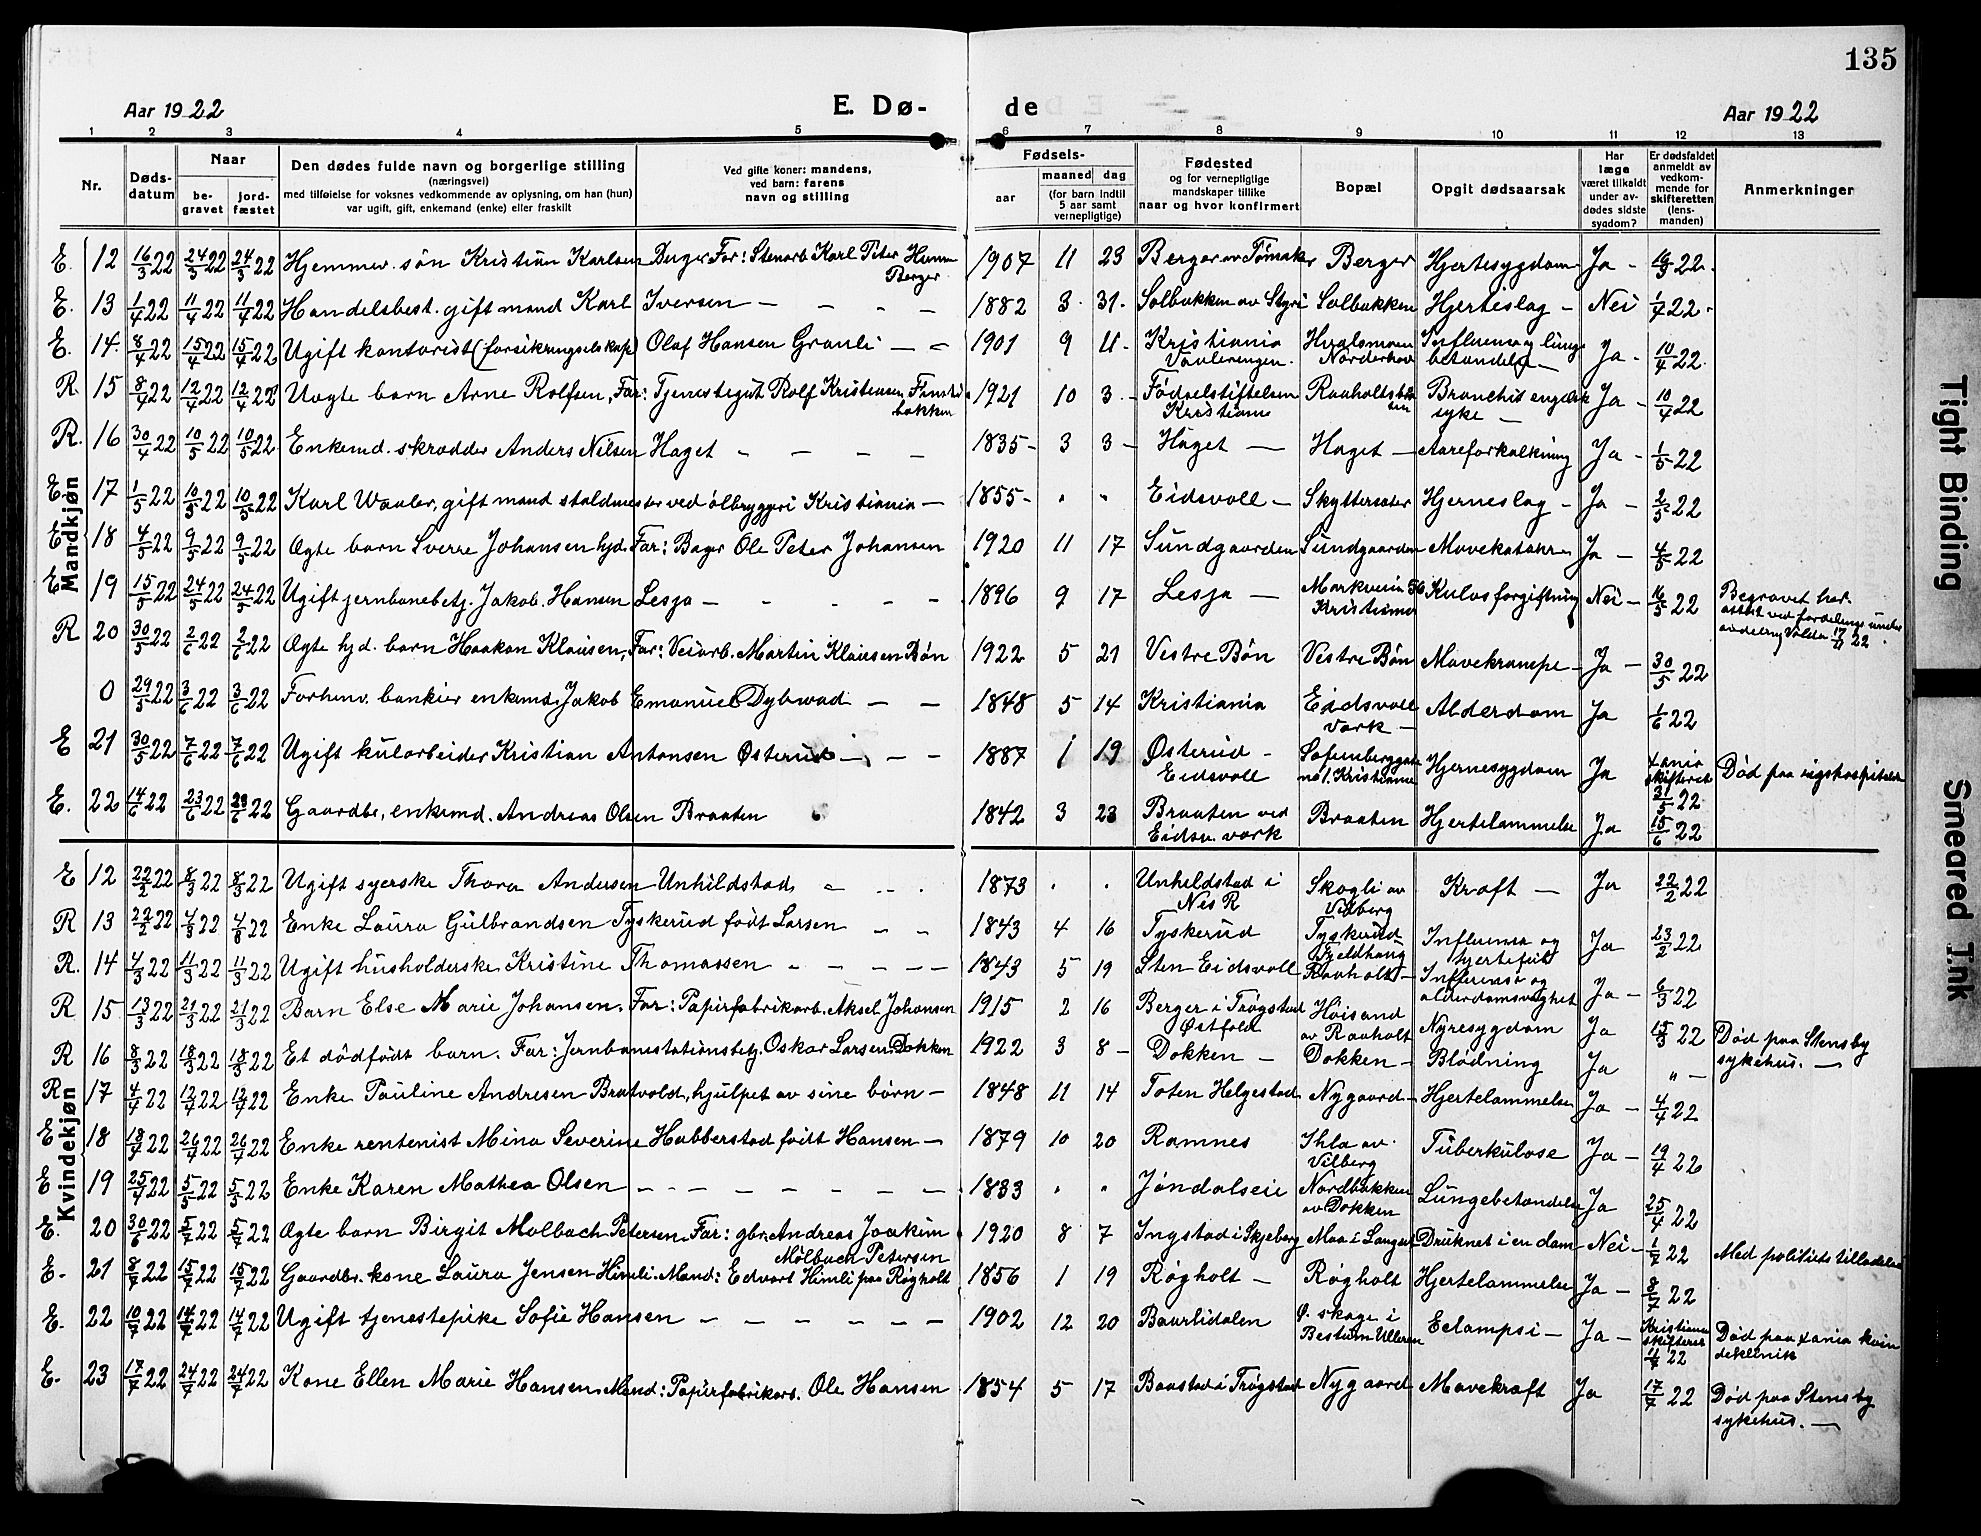 135
Aar 1922 E. Dø- de Aar 1922
1 2 3 4 5 6 7 8 9 10 11 12 13
Nr.
Døds-datum
Naar
be-gravet
jord-fæstet
Den dødes fulde navn og borgerlige stilling
(næringsvei)
med tilføielse for voksnes vedkommende av oplysning, om han (hun)
var ugift, gift, enkemand (enke) eller fraskilt
Ved gifte koner: mandens,
ved barn: farens
navn og stilling
Fødsels-
aar
maaned dag
(for barn indtil
5 aar samt
vernepligtige)
Fødested
og for vernepligtige
mandskaper tillike
naar og hvor konfirmert
Bopæl
Opgit dødsaarsak
Har
læge
været tilkaldt
under av-
dødes sidste
sygdom?
Er dødsfaldet
anmeldt av
vedkom-
mende for
skifteretten
(lens-
manden)
Anmerkninger
Mandkjøn
E. 12 16/3 22 24/3 22 24/3 22 Hjemmev. søn Kristian Karlsen Berger Far: Stenarb. Karl Peter Berger 1907 11 23 Berger Berger Hjertesygdom Ja - 22
E. 13 1/4 22 11/4 22 11/4 22 Handelsbest. gift mand Karl Iversen - - - - 1882 3 31 Solbakken av Styri Solbakken Hjerteslag - Nei 1/4 22
E. 14 8/4 22 15/4 22 15/4 22 Ugift kontorist (forsikringselskap) Olaf Hansen Granli - - 1901 9 11 Kristiania Vaalerengen Norderhov Influensa og lunge betændelse - Ja - 10/4 22
R 15 8/4 22 12/4 22 12/4 22 Uegte barn Arne Rolfsen, Far: Tjenestegut Rolf Kristiansen bakken 1921 10 3 - Fødselstiftelsen Kristiania Bronchit engelsk syke - Ja - 10/4 22
R. 16 30/4 22 10/5 22 10/5 22 Enkemd. skrædder Anders Nilsen Haget - - - - 1835 - 3 3 - Haget - Haget - Aareforkalkning Ja - 1/5 22
E 17 1/5 22 10/5 22 10/5 22 Karl Waaler, gift mand staldmester ved ølbryggeri Kristiania - 1855 - " " Eidsvoll - Skyttersæter Hjerneslag - Ja - 2/5 22
E 18 4/5 22 9/5 22 9/5 22 Ægte barn Sverre Johansen hjd. Far: Bager Ole Peter Johansen 1920 11 17 Sundgaarden Sundgaarden Mavekatahr - Ja - 4/5 22
E 19 15/5 22 24/5 22 24/5 22 Ugift jernbanebetj. Jakob Hansen Lesja - - - - - 1896 9 17 Lesja - Markveien 56 Kristiania Kulosforgiftning Nei - 16/5 22 Begravet her
R 20 30/5 22 2/6 22 2/6 22 Ægte hjd. barn Haakon Klausen, Far: Veiarb. Martin Klausen Bøn 1922 5 21 Vestre Bøn Vestre Bøn Mavekrampe - Ja - 30/5 22
0 29/5 22 3/6 22 3/6 22 Forhenv. bankier enkemd. Jakob Emanuel Dybwad - - 1848 5 14 Kristiania Eidsvoll værk - Alderdom Ja 1/6 22
E 21 30/5 22 7/6 22 7/6 22 Ugift kularbeider Kristian Antonsen Østerud - - - 1887 1 19 Østerud - Eidsvoll Sofienberggaten 1. Kristiania Hjernesygdom Ja Xania skifteret 31/5 22 Død paa rigshospitalet
E. 22 14/6 22 23/6 22 23/6 22 Gaardbr. enkemd. Andreas Olsen Braaten 1842 3 23 Braaten ved Eidsv. værk Braaten Hjertelammelse Ja 15/6 22
Kvindekjøn
E 12 22/2 22 8/3 22 8/3 22 Ugift syerske Thora Andersen Unhildstad 1873 " " Unhildstad i Nes R Skogli av Vilberg Kræft - Ja 22/2 22
R 13 22/2 22 4/3 22 4/3 22 Enke Laura Gulbrandsen Tyskerud født Larsen - - 1843 4 16 Tyskerud Tyskerud Influensa og hjertefeil Ja 23/2 22
R. 14 4/3 22 11/3 22 11/3 22 Ugift husholderske Kristine Thomassen - - - - - 1843 5 19 Sten Eidsvoll Raaholt - Influensa og alderdomsvaghet Ja - 6/3 22
R 15 13/3 22 21/3 22 21/3 22 Barn Else Marie Johansen. Far: Papirfabrikarb. Aksel Johansen 1915 2 16 Berger i Trøgstad Østfold Høisand av Raaholt Nyresygdom Ja 15/3 22 Død paa Stensby sykehus. -
R 16 8/3 22 18/3 22 18/3 22 Et dødfødt barn. Far: Jernbanestationsbetj. Oskar Larsen Dokken 1922 3 8 - Dokken - Dokken - Blødning Ja " -
R 17 4/4 22 12/4 22 12/4 22 Enke Pauline Andresen Bratvold, hjulpet av sine børn - 1848 11 14 Toten Helgestad Nygaard - Hjertelammelse Ja - 4/4 22
E 18 18/4 22 26/4 22 26/4 22 Enke rentenist Mina Severine Habberstad født Hansen - 1879 10 20 Ramnes Ihla av Vilberg Tuberkulose Ja - 19/4 22
E 19 25/4 22 5/5 22 5/5 22 Enke Karen Mathea Olsen - - - - - - - 1833 " " Jøndalseie Nordbakken av Dokken Lungebetændelse Ja 25/4 22
E. 20 30/6 22 5/7 22 5/7 22 Ægte barn Birgit Molbach Petersen. Far: gbr. Andreas Joakim Mølbach Petersen 1920 8 7 Ingstad i Skjeberg Druknet i en dam Nei - 1/7 22 Med politiets tilladelse
E. 21 8/7 22 15/7 22 15/7 22 Gaardbr. kone Laura Jensen Himli. Mand: Edvart Himli paa Røgholt 1856 1 19 Røgholt - Røgholt Hjertelammelse Ja - 8/7 22
E. 22 10/7 22 14/7 22 14/7 22 Ugift tjenestepike Sofie Hansen - - - - - - 1902 12 20 Baarlidalen Ø. skage i Bestum Ulleren Eclampsi - Ja - Kristiania skifteret 11/7 22 Død paa Xania kvindeklinik
E. 23 17/7 22 24/7 22 24/7 22 Kone Ellen Marie Hansen. Mand: Papirfabrikarb. Ole Hansen 1854 5 17 Baastad i Trøgstad Nygaard Mavekræft Ja 17/7 22 Død paa Stensby sykehus. -
Tight Binding
Smeared Ink